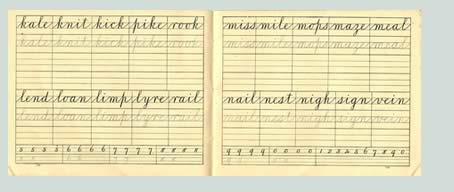 kale knit kick pike rook
kale knit kick pike rook
lend loan limp lyre rail
lend loan limp lyre rail
5 5 5 5 6 6 6 6 7 7 7 7 8 8 8 8
miss mile mops maze meal
miss mile mops maze meal
nail nest nigh sign vein
nail nest nigh sign vein
9 9 9 9 0 0 0 0 1 2 3 4 5 6 7 8 9 0